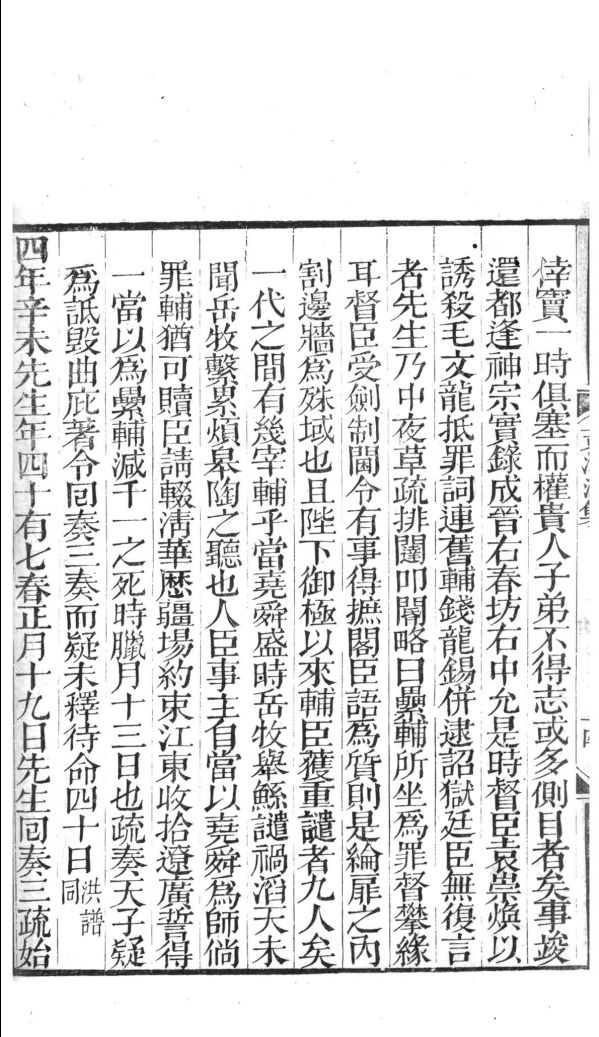 倖竇一時俱塞而權貴人子弟不得志或多側目者矣事竣
還都逢神宗實錄成晉右春坊右中允是時督臣袁崇煥以
誘殺毛文龍抵罪詞連舊輔錢龍錫併逮詔獄廷臣無復言
者先生乃中夜草疏排闥叩閽略曰纍輔所坐爲罪督攀緣
耳督臣受劍制閫令有事得摭閣臣語爲質則是綸扉之內
割邊牆爲殊域也且陛下御極以來輔臣獲重譴者九人矣
一代之間有幾宰輔乎當堯舜盛時岳牧舉鯀譴禍滔天未
聞岳牧繫累煩皋陶之聽也人臣事主自當以堯舜爲師倘
罪輔猶可贖臣請輟淸華歷疆場約束江東收拾遼廣誓得
一當以爲纍輔減千一之死時臘月十三日也疏奏天子疑
爲詆毀曲庇著令囘奏三奏而疑未釋待命四十日洪譜同
四年辛未先生年四十有七春正月十九日先生囘奏三疏始